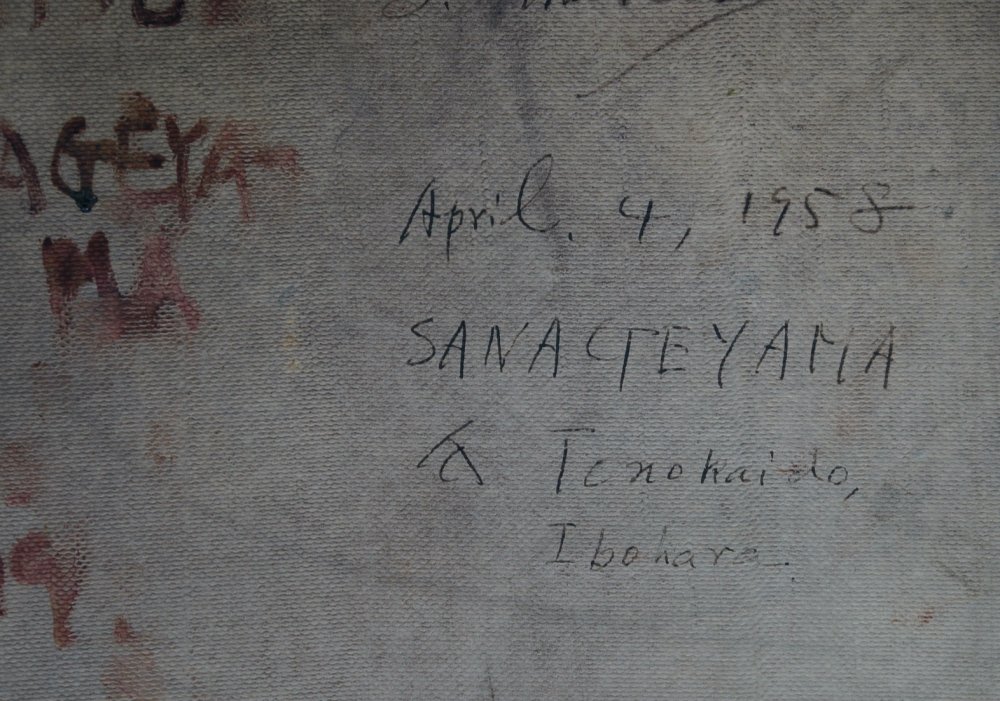 AGEYA
MA
April. 4, 1958
SANAGEYAMA
Tenokaido,
Ibohara.